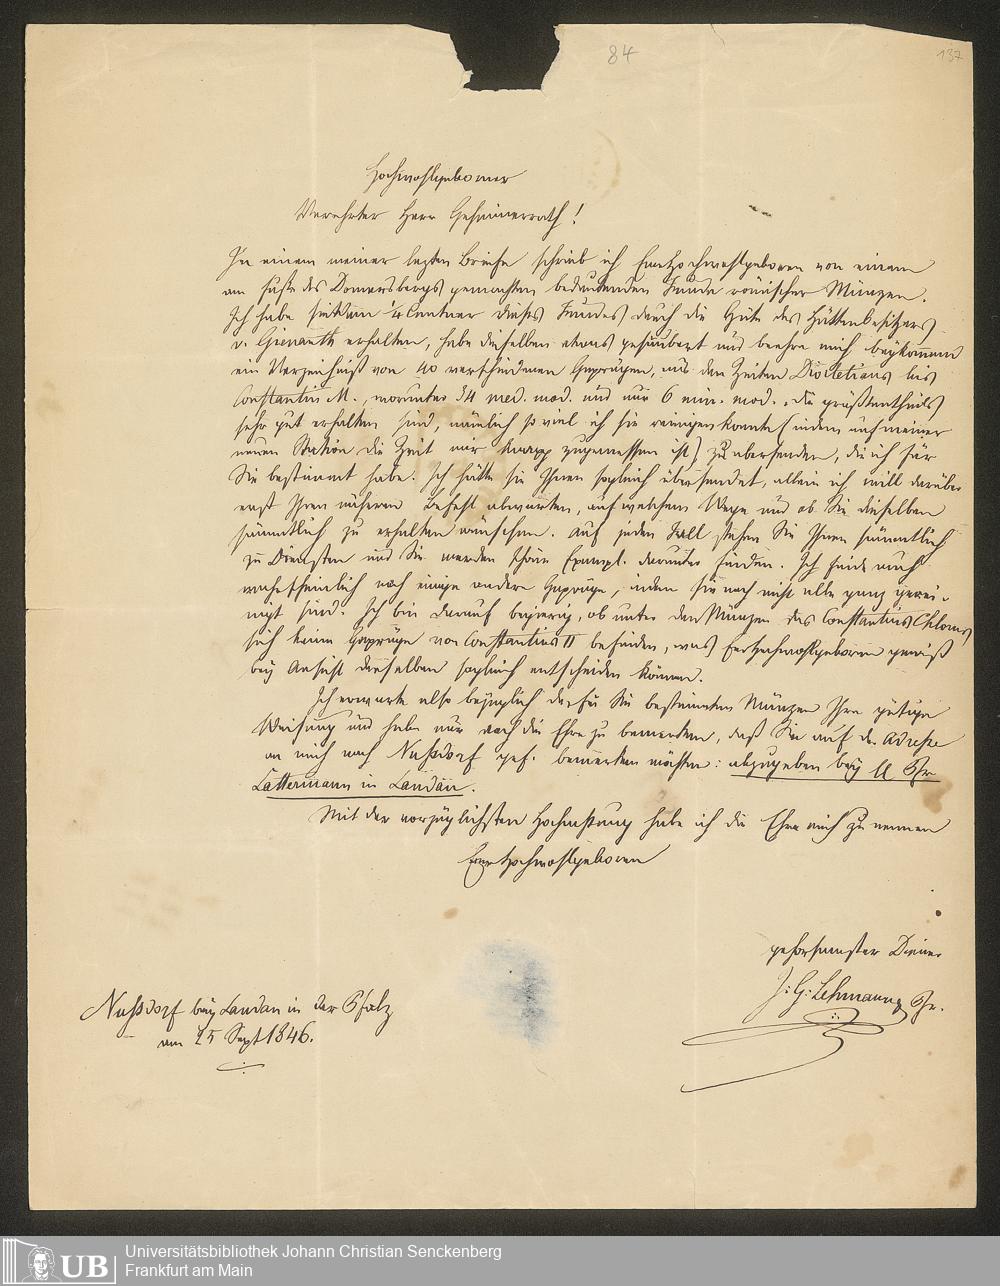 84
137
Hochwohlgeborner
Verehrter Herr Geheimerrath!
In einem meiner lezten Briefe schrieb ich Eurer Hochwohlgeboren von einem
am Fuße des Donnersbergs gemachten bedeutenden Funde römischer Münzen.
Ich habe seitdem 1/4 Centner dieses Fundes durch die Güte des Hüttenbesitzers
v. Gienanth erhalten, habe dieselben etwas gesäubert und beehre mich beykommend
ein Verzeichniß von 40 verschiedenen Geprägen, aus den Zeiten Diocletians bis
Constantin M., worunter 34 med. mod. und nur 6 min. mod., die größtentheils
sehr gut erhalten sind, nämlich so viel ich sie reinigen konnte (indem auf meiner
neuen Station die Zeit mir knapp zugemessen ist) zu übersenden, die ich für
Sie bestimmt habe. Ich hätte sie Ihnen sogleich übersendet, allein ich will darüber
erst Ihren näheren Befehl abwarten, auf welchem Wege und ob Sie dieselben
sämmtlich zu erhalten wünschen. Auf jeden Fall stehen Sie Ihnen sämmtlich
zu Diensten und Sie werden schöne Exempl. darunter finden. Ich finde auch
wahrscheinlich noch einige andere Gepräge, indem sie noch nicht alle ganz gerei-
nigt sind. Ich bin darauf begierig, ob unter den Münzen des Constantius Chlorus
sich keine Gepräge von Constantius II befinden, was Eur Hochwohlgeboren gewiß
bey Ansicht derselben sogleich entscheiden können.
Ich erwarte also bezüglich der für Sie bestimmten Münzen Ihre gütige
Weisung und habe nur noch die Ehre zu bemerken, daß Sie auf der Adresse
an mich nach Nußdorf gef. bemerken möchten: abzugeben bey
Lattermann in Landau.
Mit der vorzüglichsten Hochachtung habe ich die Ehre mich zu nennen
Eur Hochwohlgeboren
gehorsamster Diener
J: G: Lehmann, Pfr.
Nußdorf bey Landau in der Pfalz
am 25 Sept 1846.
UB
Universitätsbibliothek Johann Christian Senckenberg
Frankfurt am Main